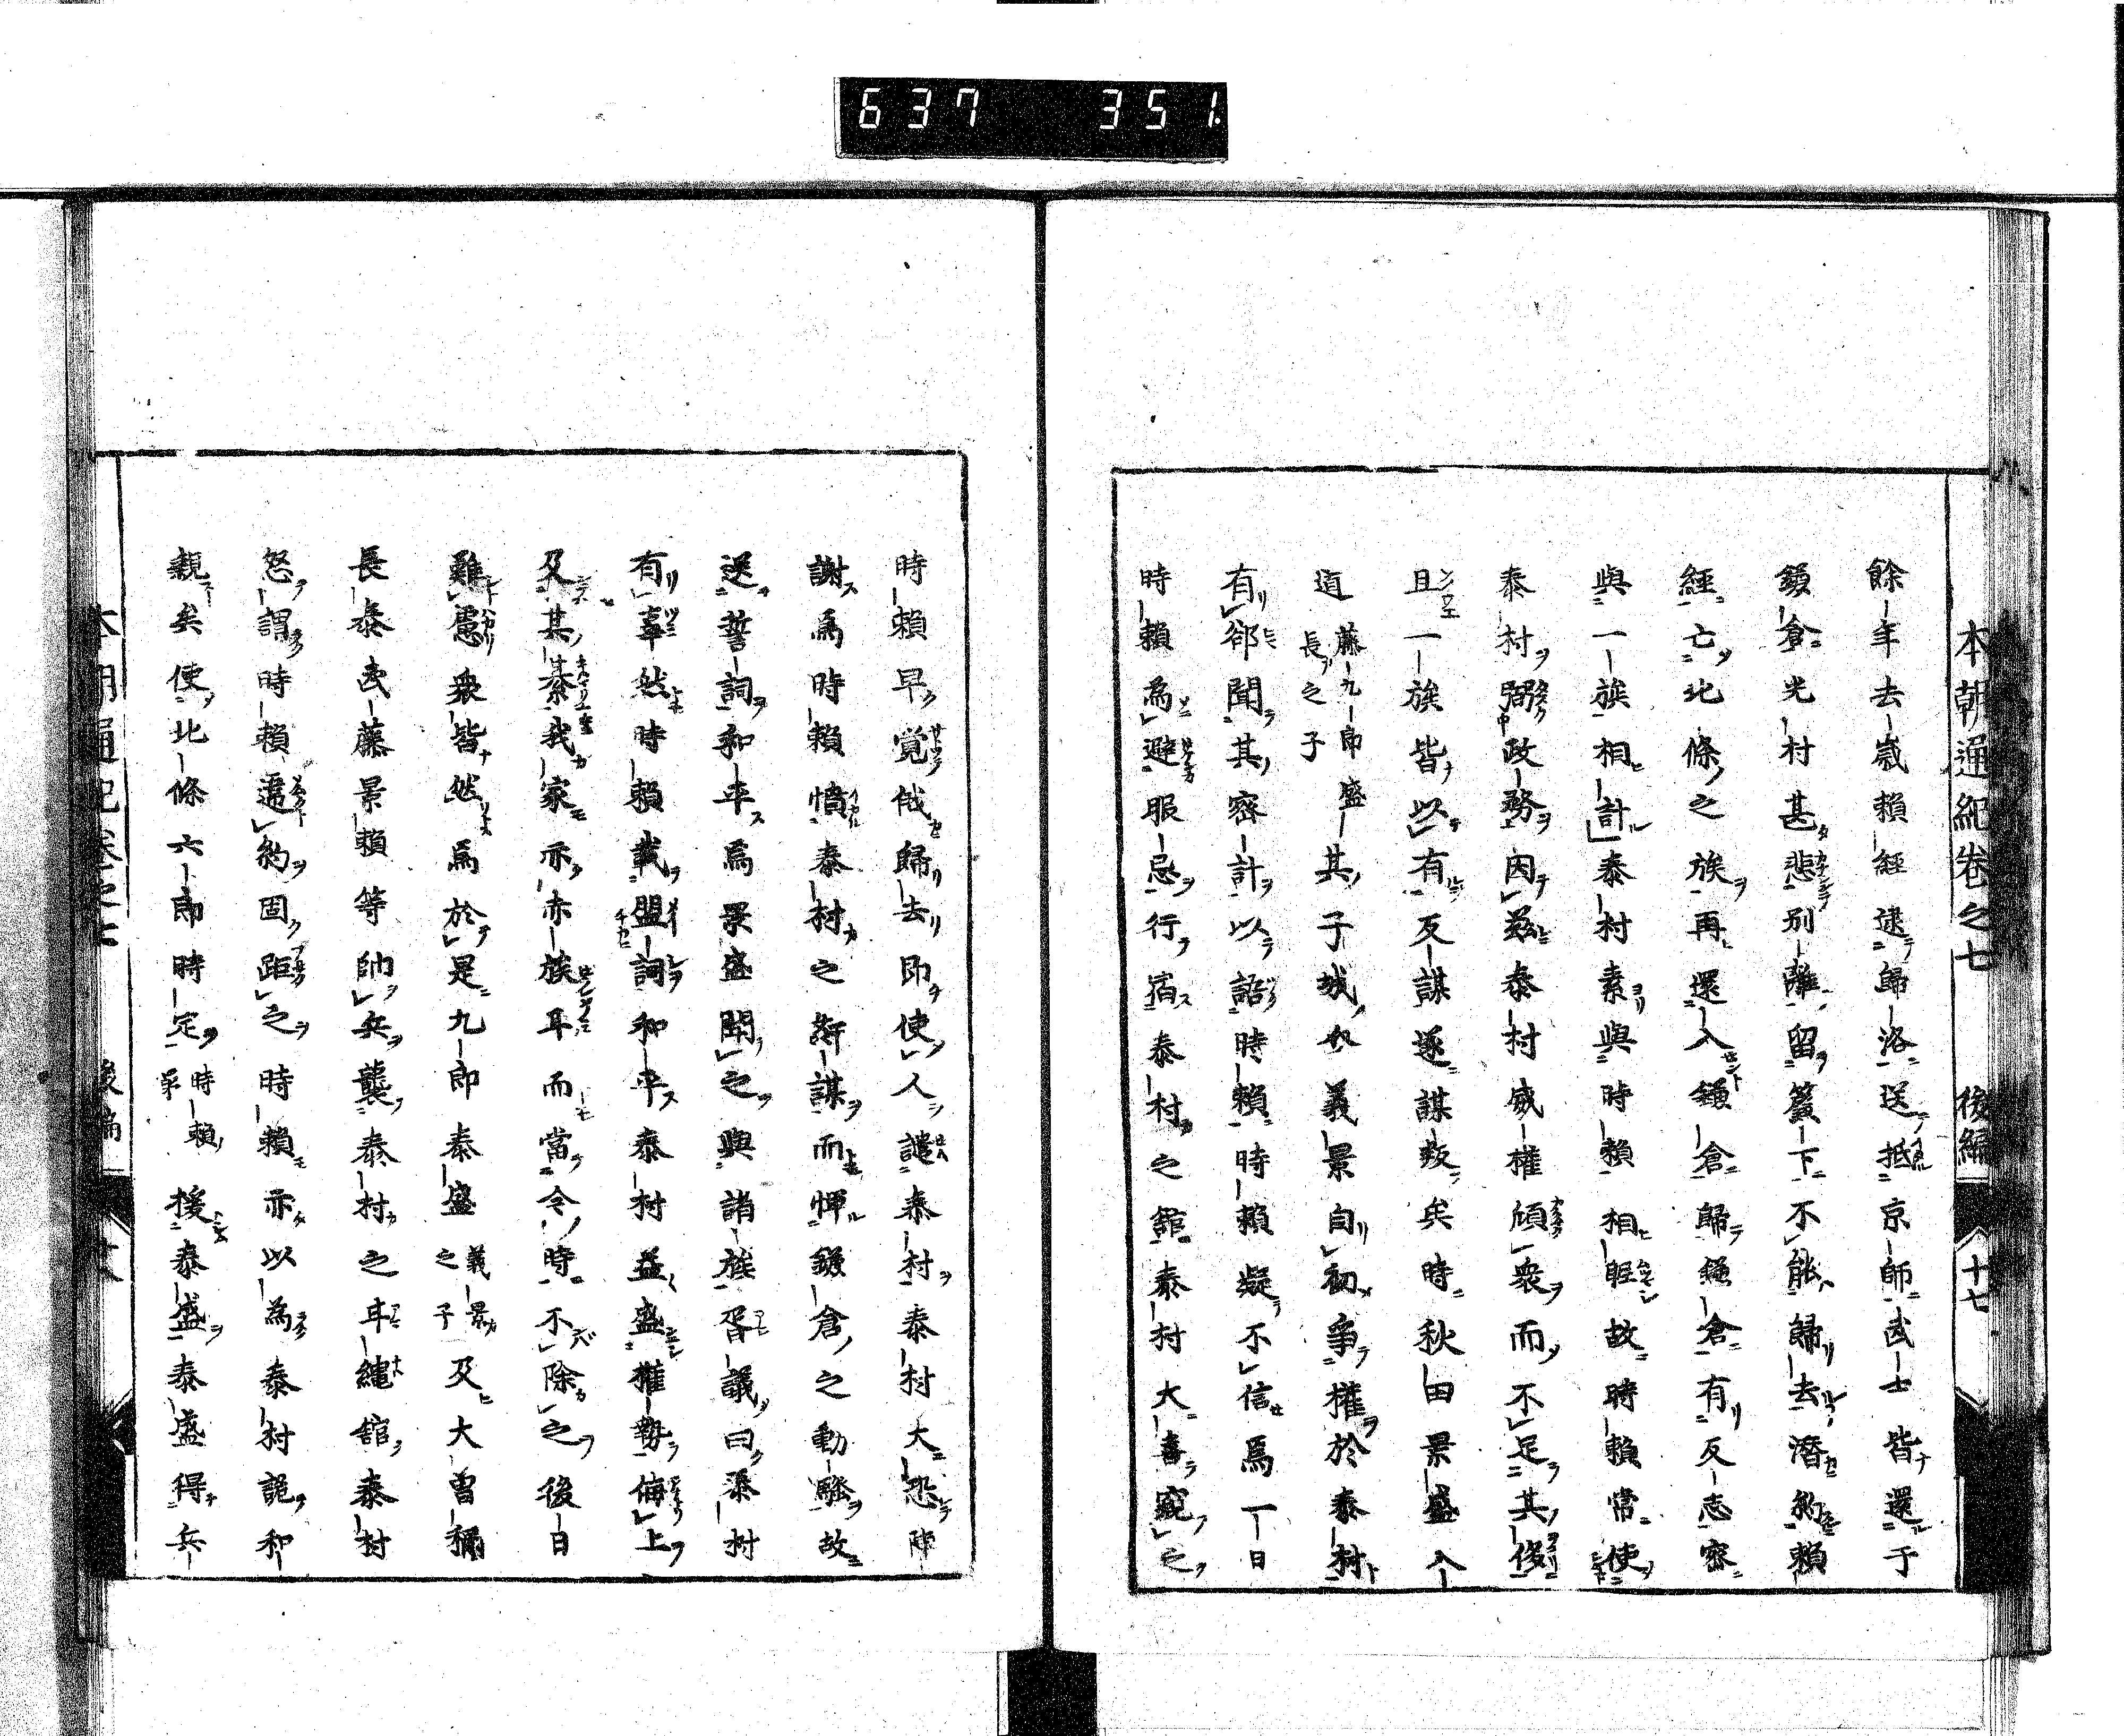 637 351.
本朝通紀卷之七 後編 十七
餘年去歲賴經逮歸洛送抵京師武士皆還于
鎌倉光村甚悲別離留簾下不能歸去潛約賴
經亡北條之族再還入鎌倉歸鎌倉有反志密
與一族相計泰村素與時賴相昵故時賴常使
泰村弼政務因茲泰村威權傾衆而不足其俊
且一族皆以有反謀遂謀叛矣時秋田景盛入
道藤九郎盛長之子其子城九義景自初爭權於泰村
有郤聞其密計以語時賴時賴疑不信焉一日
時賴為避服忌行宿泰村之館泰村大喜窺之
時賴早覺俄歸去即使人譴泰村泰村大恐陳
謝焉時賴憤泰村之姧謀而憚鎌倉之動騷故
送誓詞和平焉景盛聞之與諸族胥議曰泰村
有辜然時賴載盟詞和平泰村益盛權勢侮上
及其綦我家亦赤族耳而當今時不除之後日
難慮衆皆然焉於是九郎泰盛義景之子及大曾禰
長泰武藤景賴等帥兵襲泰村之耳繩館泰村
怒謂時賴違約固距之時賴亦以為泰村詭和
親矣使北條六郎時定時賴弟援泰盛泰盛得兵
本朝通紀卷之七 後編